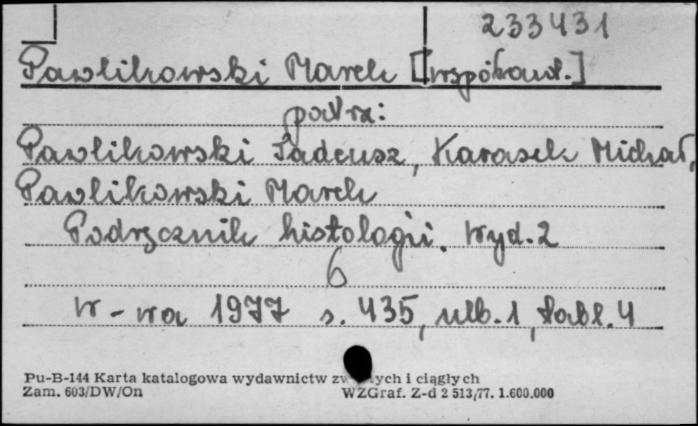 233431
Pawlikowski Marek [współaut.]
patrz:
Pawlikowski Tadeusz, Karasek Michał,
Pawlikowski Marek
Podręcznik histologii. Wyd. 2
6
W-wa 1977 s. 435, ulb. 1, tabl. 4
Pu-B-144 Karta katalogowa wydawnictw i ciągłych
Zam. 603/DW/On WZGraf. Z-d 2 513/77. 1.600.000